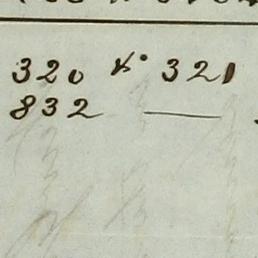 320 & 321
832 —